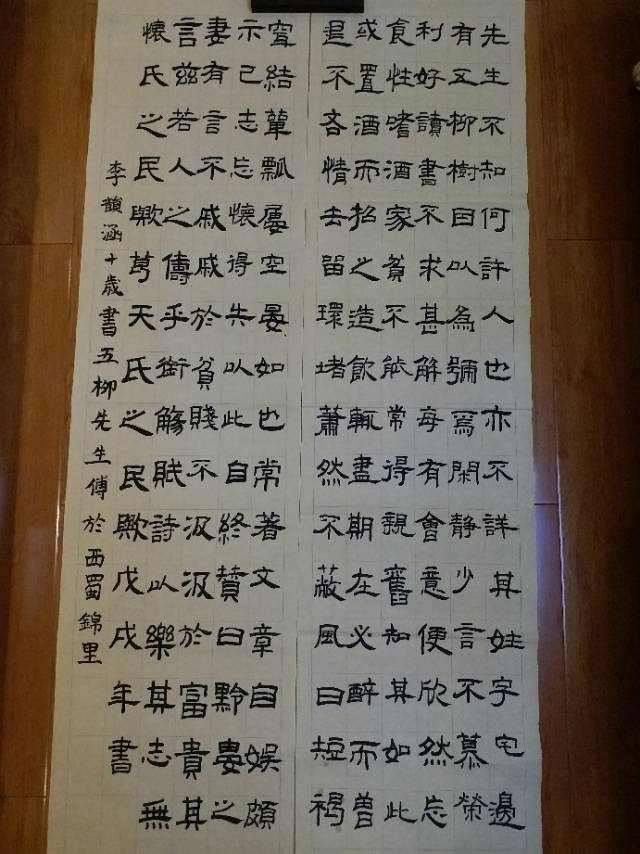 先生不知何許人也亦不詳其姓字宅邊
有五柳樹因以為號焉閑静少言不慕榮
利好讀書不求甚解每有會意便欣然忘
食性嗜酒家貧不能常得親舊知其如此
或置酒而招之造飲輒盡期在必醉而曾
退不吝情去留環堵蕭然不蔽風日短褐
穿結簞瓢屢空晏如也常著文章自娛頗
示己志忘懷得失以此自終贊曰黔婁之
妻有言不戚戚於貧賤不汲汲於富貴其
言茲若人之儔乎銜觴賦詩以樂其志無
懷氏之民歟葛天氏之民歟戊戌年書
李韻涵十歲書五柳先生傳於西蜀錦里